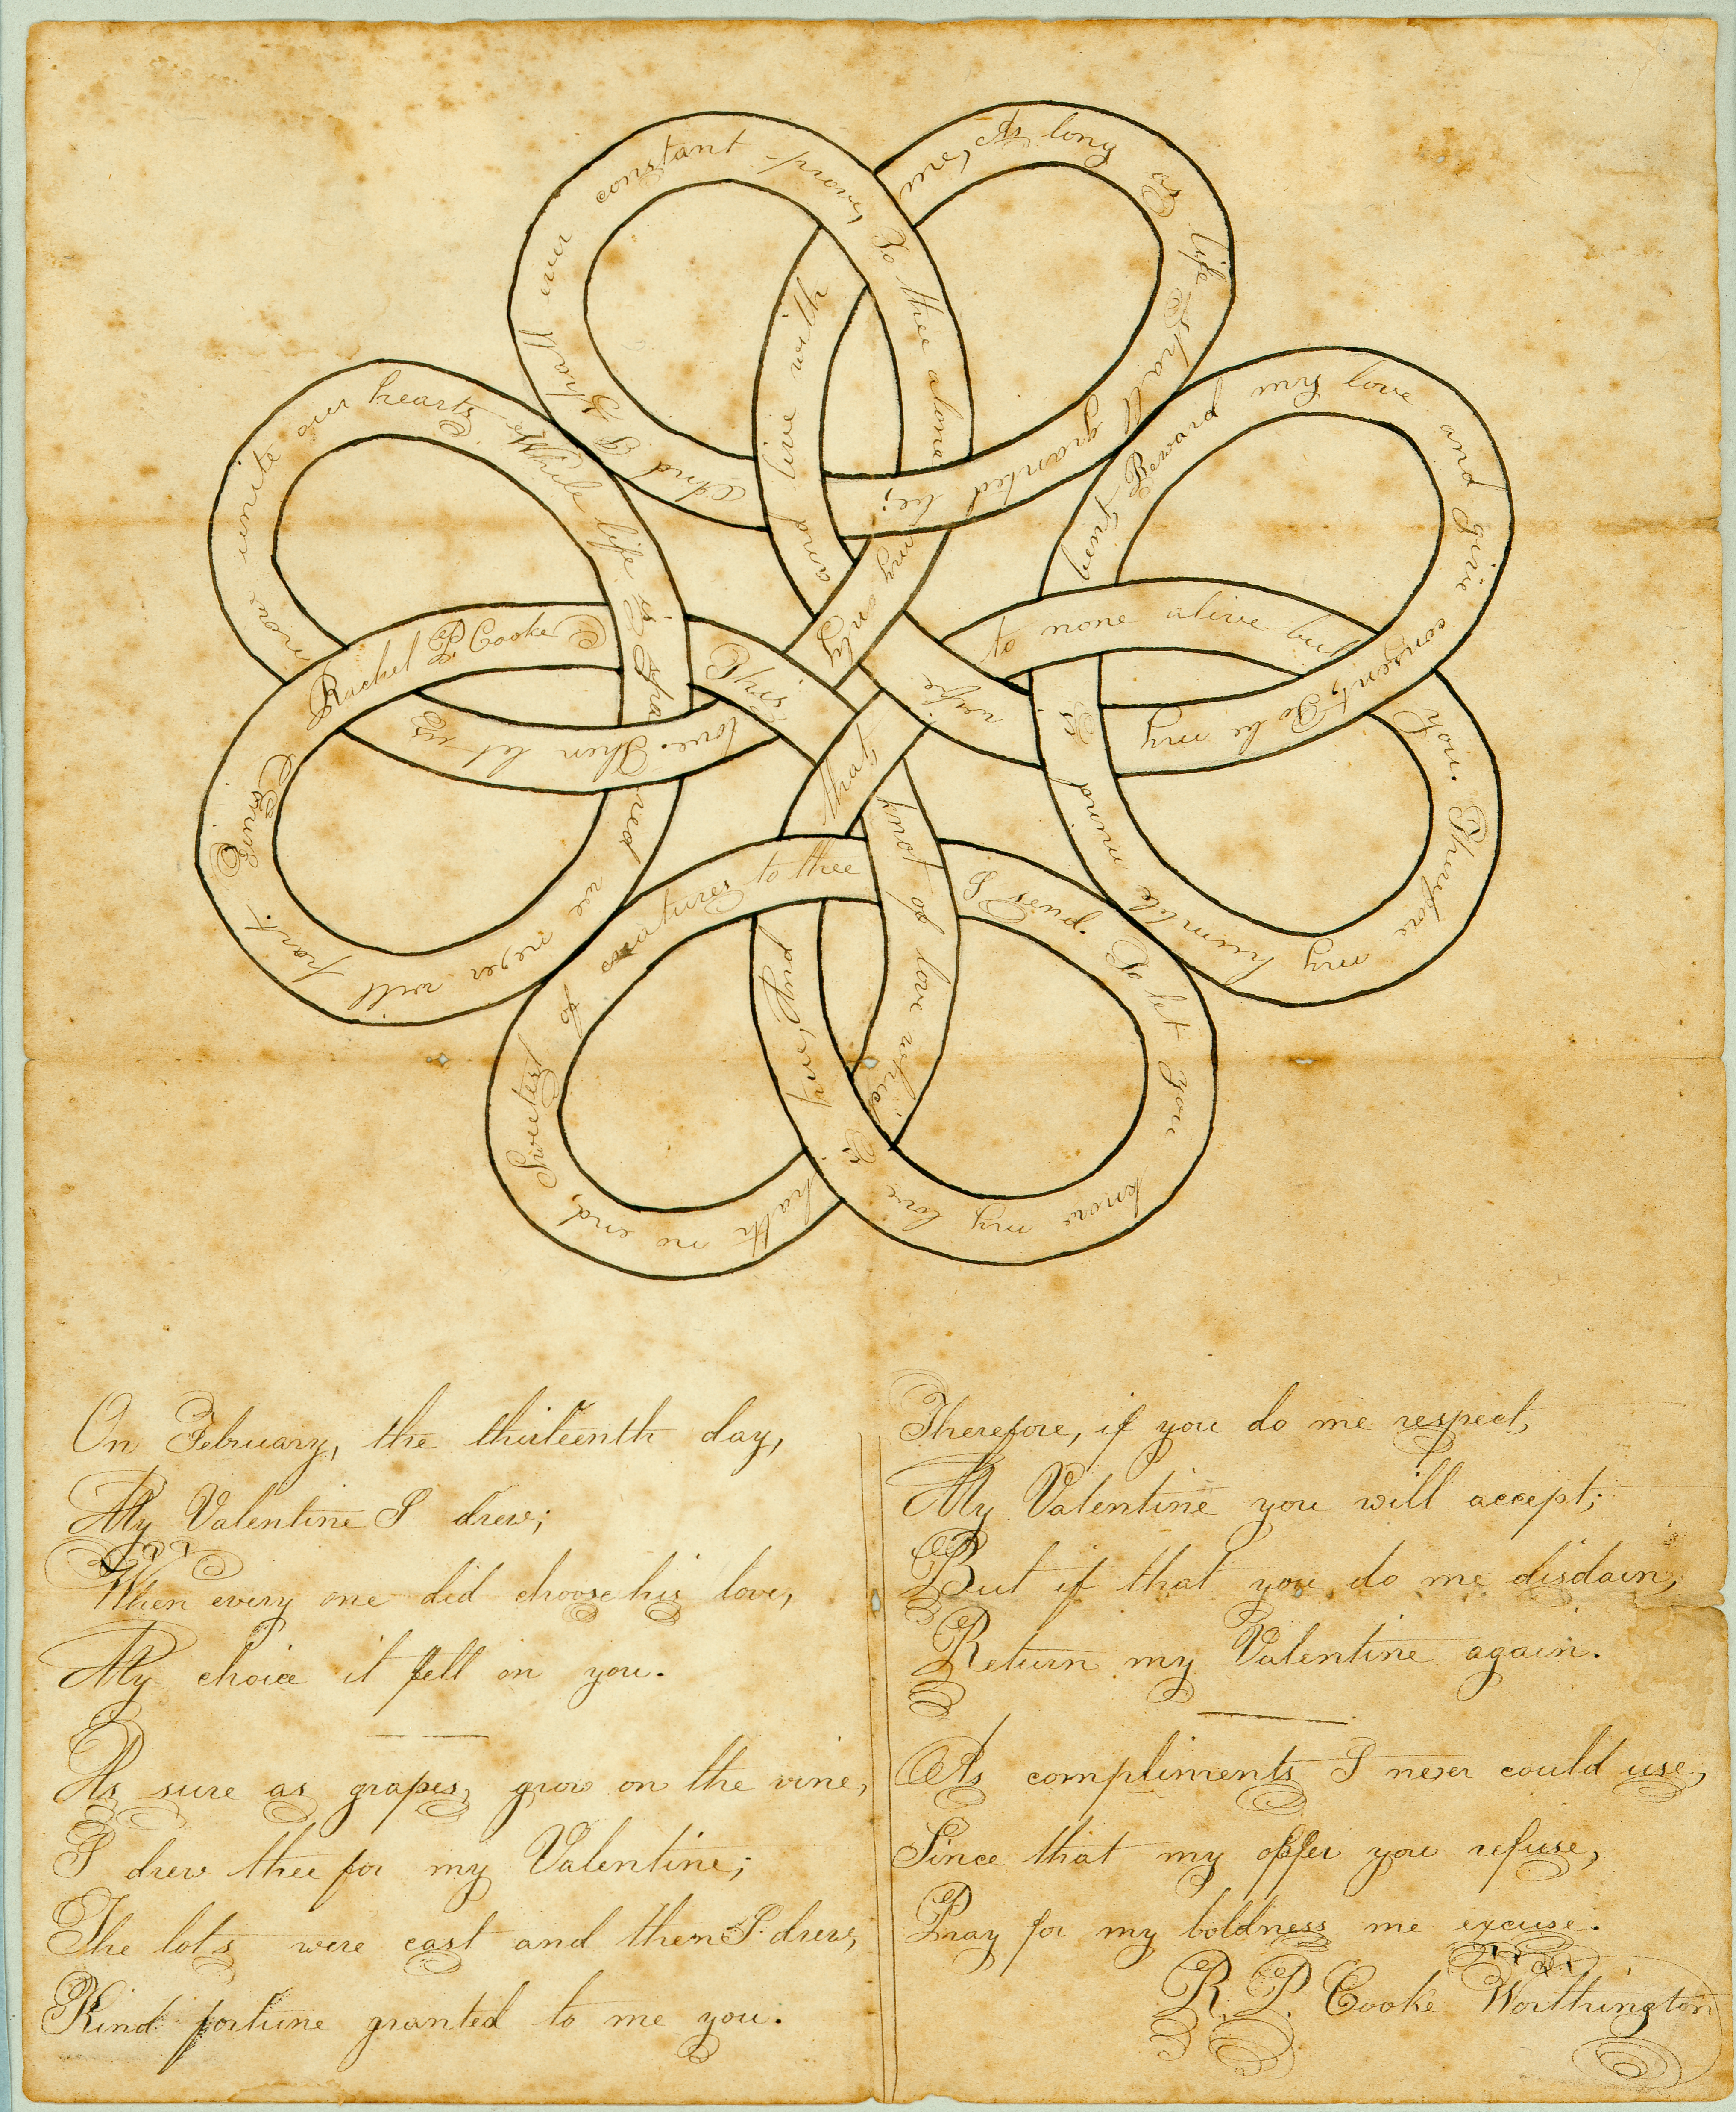 This
knot of love which
hath no end,
Sweetest of creatures to thee
I send. To let you know my love is
my only
to none alive but
you. Therefore my humble mind is
Reward my love and give consent, To be my
wife
and live with
true love
As long as life Shall granted be;
And I Shall ever constant prove, To thee alone
love. Then let us
now unite our hearts While life is Spared we never will part.
Come
Rachel P. Cooke
On February, the thirteenth day,
My Valentine I drew;
When every one did choose his love,
My choice it fell on you.
As sure as grapes, grow on the vine,
I drew thee for my Valentine;
The lots were cast and then I drew,
Kind fortune granted to me you.
Therefore, if you do me respect,
My Valentine you will accept;
But if that you do me disdain,
Return my Valentine again.
As compliments I never could use,
Since that my offer you refuse,
Pray for my boldness me excuse.
R. P. Cooke Worthington